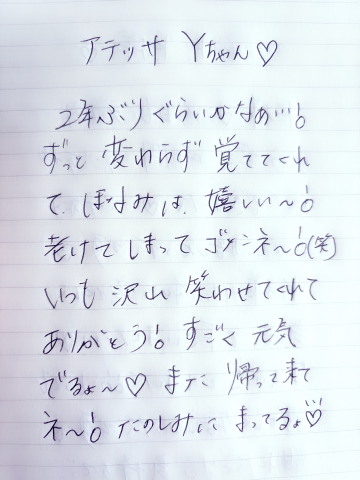 アテッサ Yちゃん♡
2年ぶりぐらいかなぁ…!
ずっと 変わらず 覚えててくれ
て、ほなみは、嬉しい〜!
老けてしまって ゴメンネ〜!(笑)
いつも 沢山 笑わせてくれて
ありがとう! すごく 元気
でるよ〜♡ また 帰って来て
ネ〜! たのしみに まってるよ♡